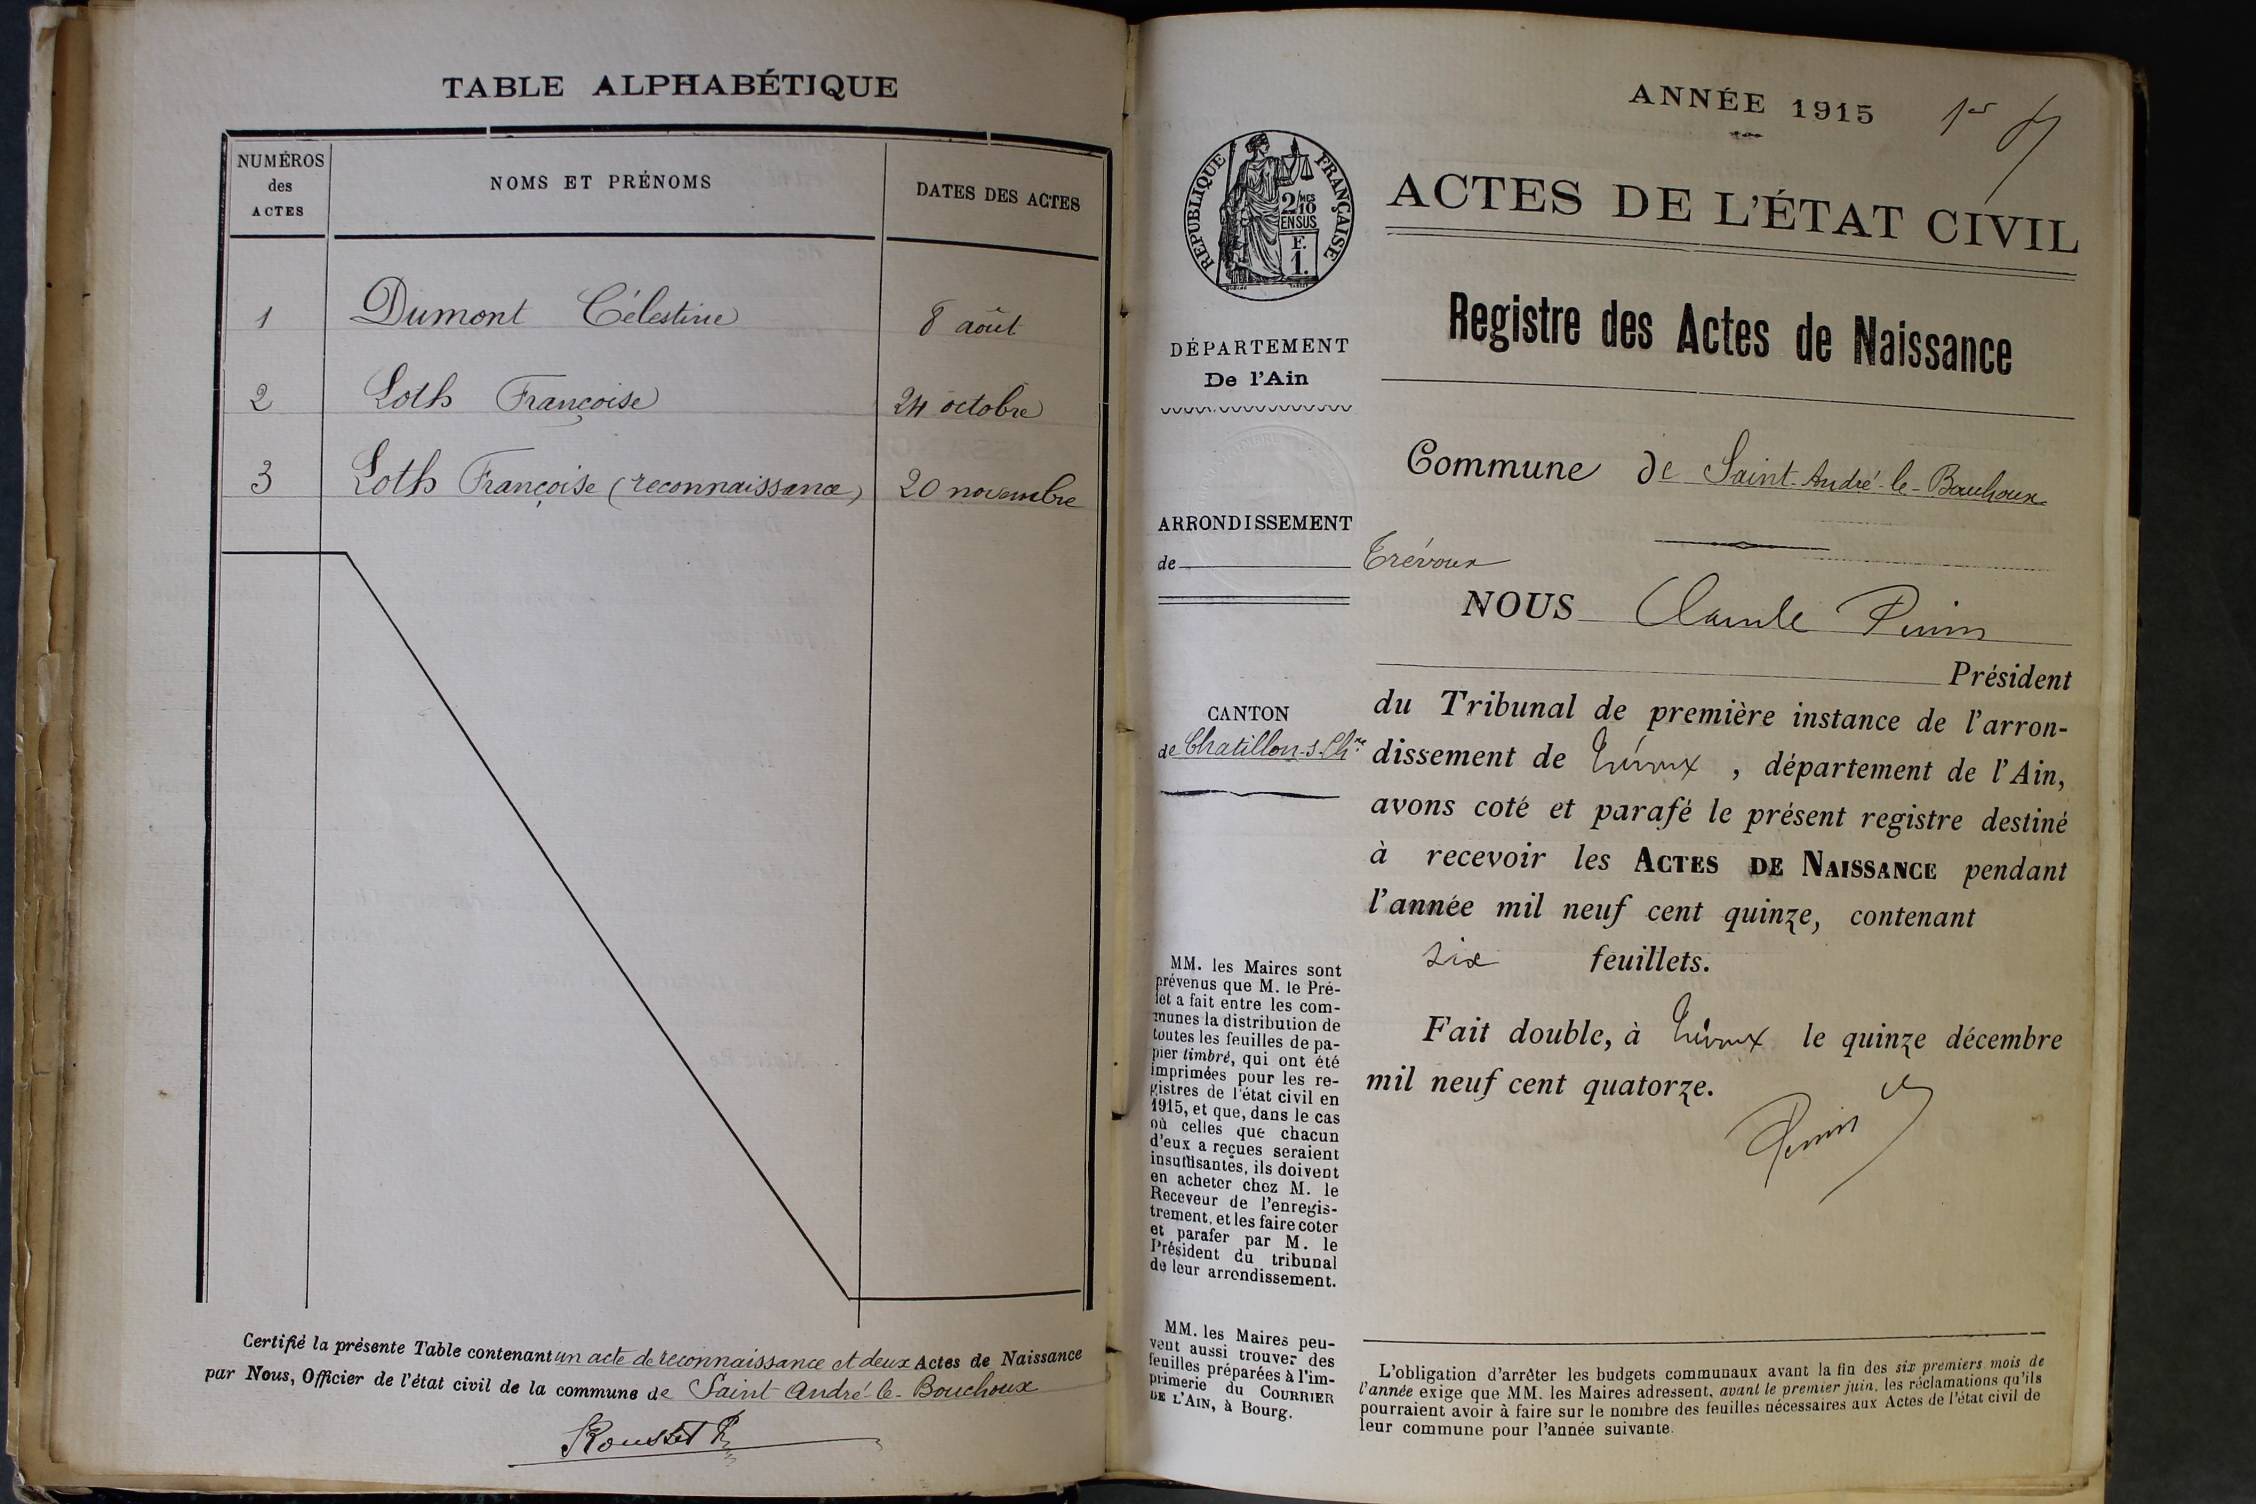 TABLE ALPHABÉTIQUE
NUMÉROS des ACTES
NOMS ET PRÉNOMS
DATES DES ACTES
1 Dumont Célestine 8 août
2 Loth Françoise 24 octobre
3 Loth Françoise (reconnaissance) 20 novembre
Certifié la présente Table contenant un acte de reconnaissance et deux Actes de Naissance
par Nous, Officier de l'état civil de la commune de Saint André-le-Bouchoux
Rousset
ANNÉE 1915
1er
RÉPUBLIQUE FRANÇAISE
2/MES
10
EN SUS
F.
1.
ACTES DE L'ÉTAT CIVIL
Registre des Actes de Naissance
DÉPARTEMENT
De l'Ain
Commune de Saint-André-le-Bouchoux
ARRONDISSEMENT
de Trévoux
NOUS Claude
Président
CANTON
de Chatillon-s-Chne
du Tribunal de première instance de l'arron-
dissement de Trévoux, département de l'Ain,
avons coté et parafé le présent registre destiné
à recevoir les ACTES DE NAISSANCE pendant
l'année mil neuf cent quinze, contenant
six feuillets.
Fait double, à Trévoux le quinze décembre
mil neuf cent quatorze.
MM. les Maires sont
prévenus que M. le Pré-
fet a fait entre les com-
munes la distribution de
toutes les feuilles de pa-
pier timbré, qui ont été
imprimées pour les re-
gistres de l'état civil en
1915, et que, dans le cas
où celles que chacun
d'eux a reçues seraient
insuffisantes, ils doivent
en acheter chez M. le
Receveur de l'enregis-
trement, et les faire coter
et parafer par M. le
Président du tribunal
de leur arrondissement.
MM. les Maires peu-
vent aussi trouver des
feuilles préparées à l'im-
primerie du COURRIER
DE L'AIN, à Bourg.
L'obligation d'arrêter les budgets communaux avant la fin des six premiers mois de
l'année exige que MM. les Maires adressent, avant le premier juin, les réclamations qu'ils
pourraient avoir à faire sur le nombre des feuilles nécessaires aux Actes de l'état civil de
leur commune pour l'année suivante.